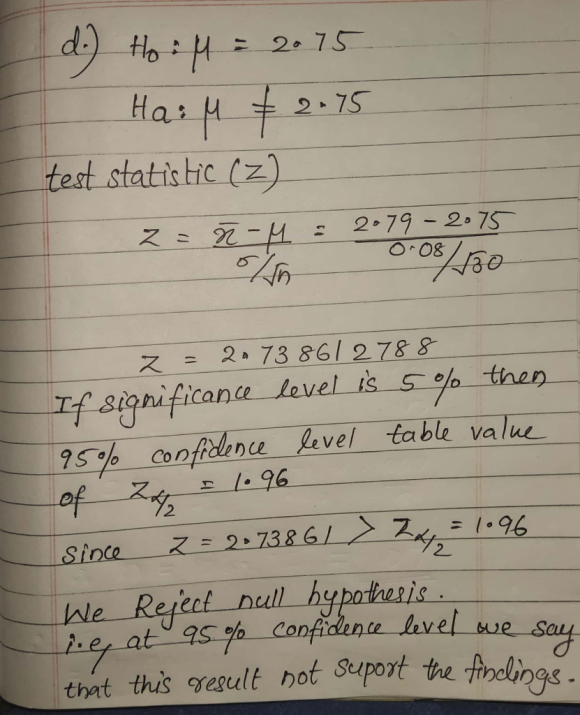 d.) H₀ : μ = 2.75
Ha : μ ≠ 2.75
test statistic (Z)
z = x̄ - μ / σ/√n = 2.79 - 2.75 / 0.08/√30
z = 2.738612788
If significance level is 5% then
95% confidence level table value
of Zα/2 = 1.96
since z = 2.73861 > Zα/2 = 1.96
We Reject null hypothesis.
i.e, at 95% confidence level we say
that this result not suport the findings.